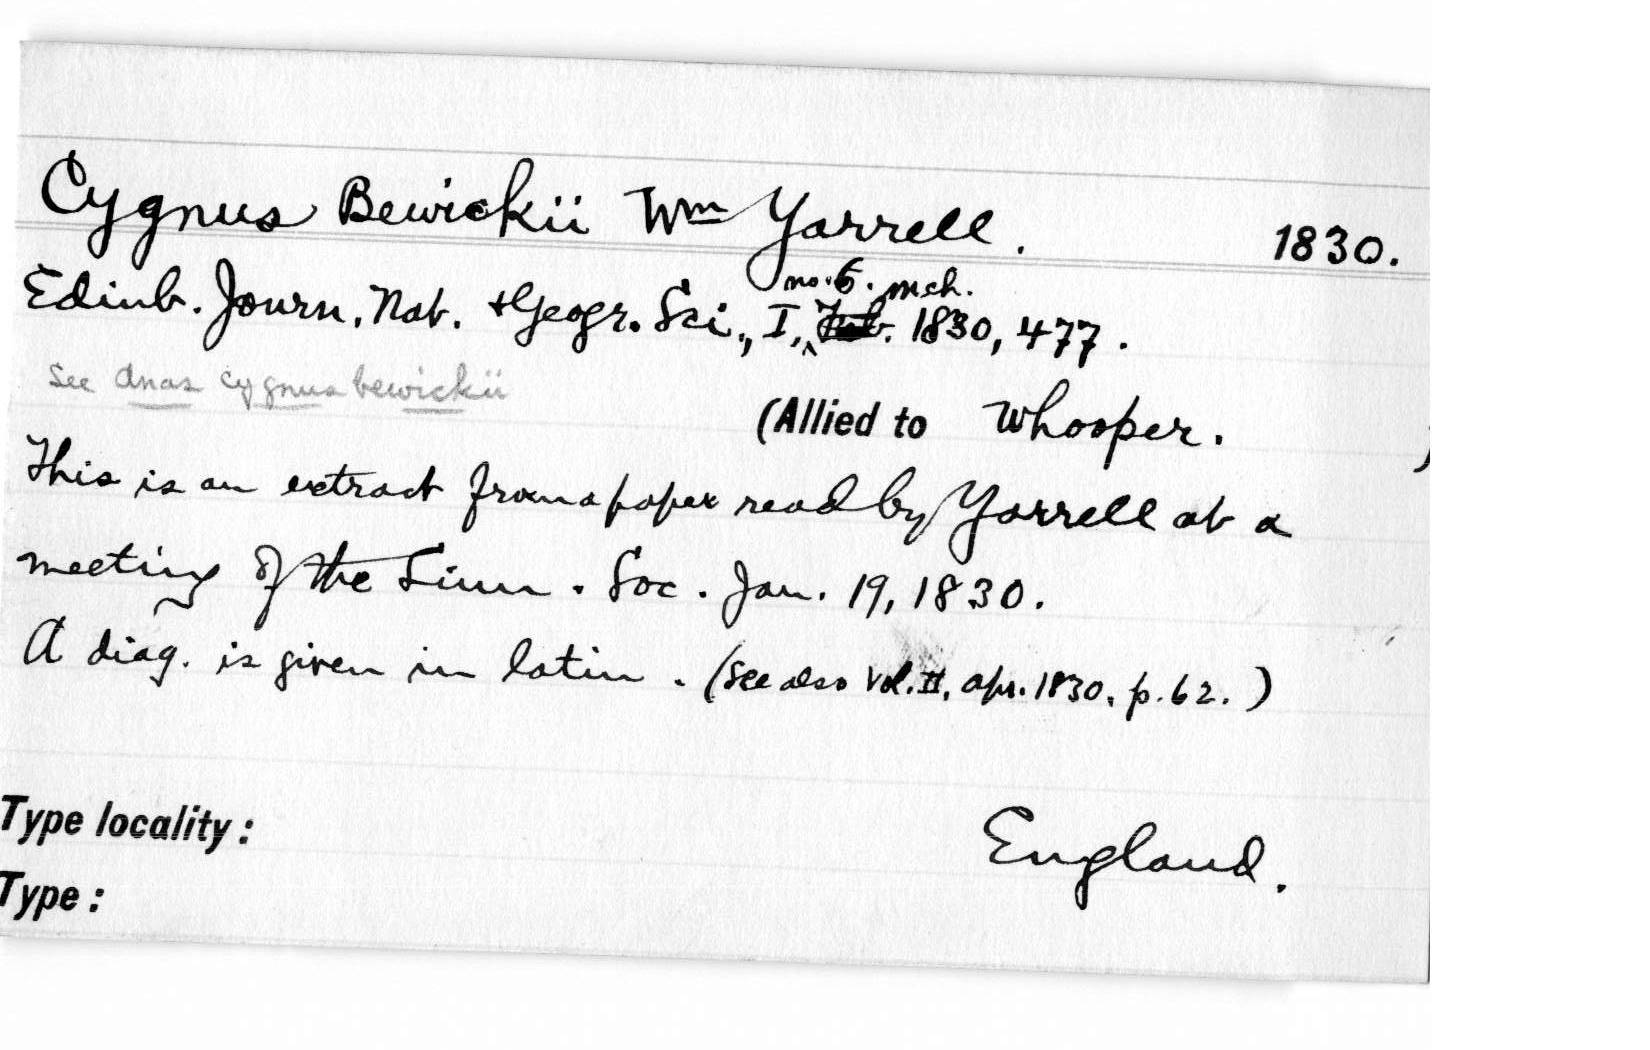 Cygnus Bewickii Wm Yarrell. 1830.
no. 6. mch.
Edinb. Journ. Nat. & Geogr. Sci., I, Feb. 1830, 477.
See Anas cygnus bewickii
(Allied to Whooper. )
This is an extract from a paper read by Yarrell at a
meeting of the Linn. Soc. Jan. 19, 1830.
A diag. is given in latin. (See also Vol. II, apr. 1830, p. 62.)
Type locality: England.
Type: